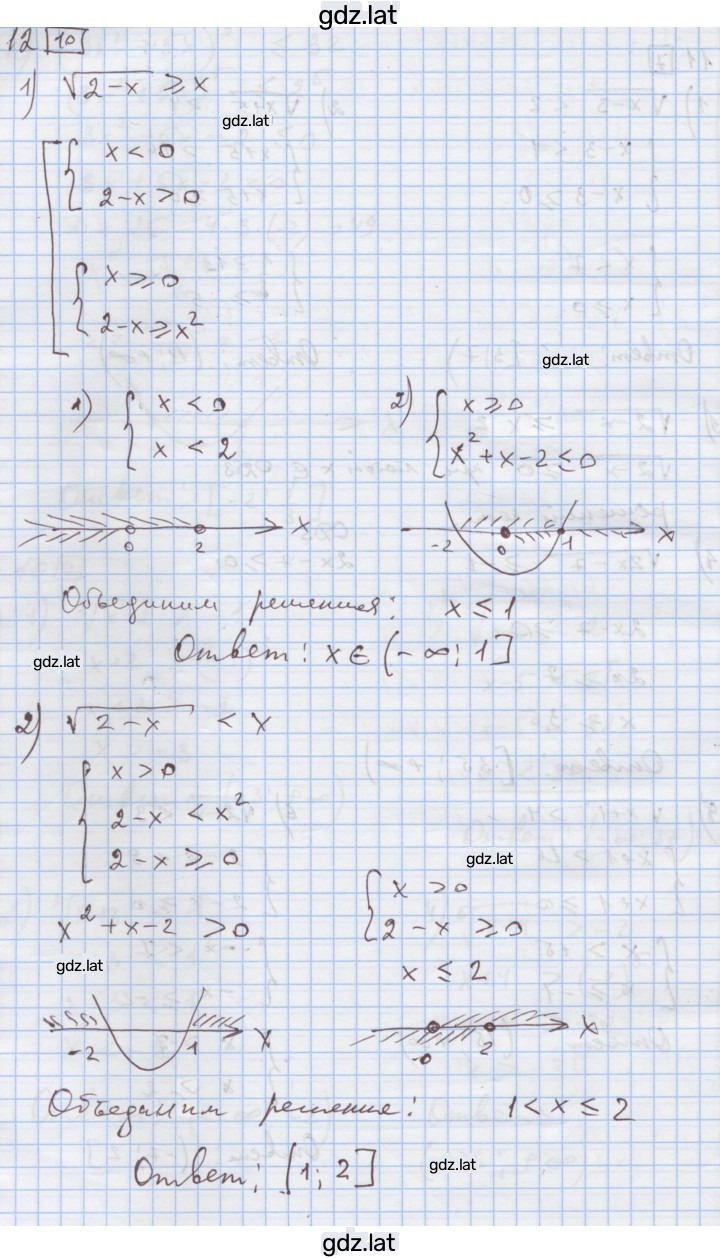 gdz.lat
12 10
1) √2-x ≥ x
gdz.lat
x < 0
2-x > 0
x ≥ 0
2-x ≥ x²
gdz.lat
1) { x < 0
x < 2
2) { x ≥ 0
x² + x - 2 ≤ 0
0 2 x
-2 0 1 x
Объединим решения: x ≤ 1
Ответ: x ∈ (-∞; 1]
gdz.lat
2) √2-x < x
x > 0
2-x < x²
2-x ≥ 0
gdz.lat
x² + x - 2 > 0
{ x > 0
2 - x ≥ 0
x ≤ 2
gdz.lat
-2 1 x
0 2 x
Объединим решение: 1 < x ≤ 2
Ответ: [1; 2]
gdz.lat
gdz.lat